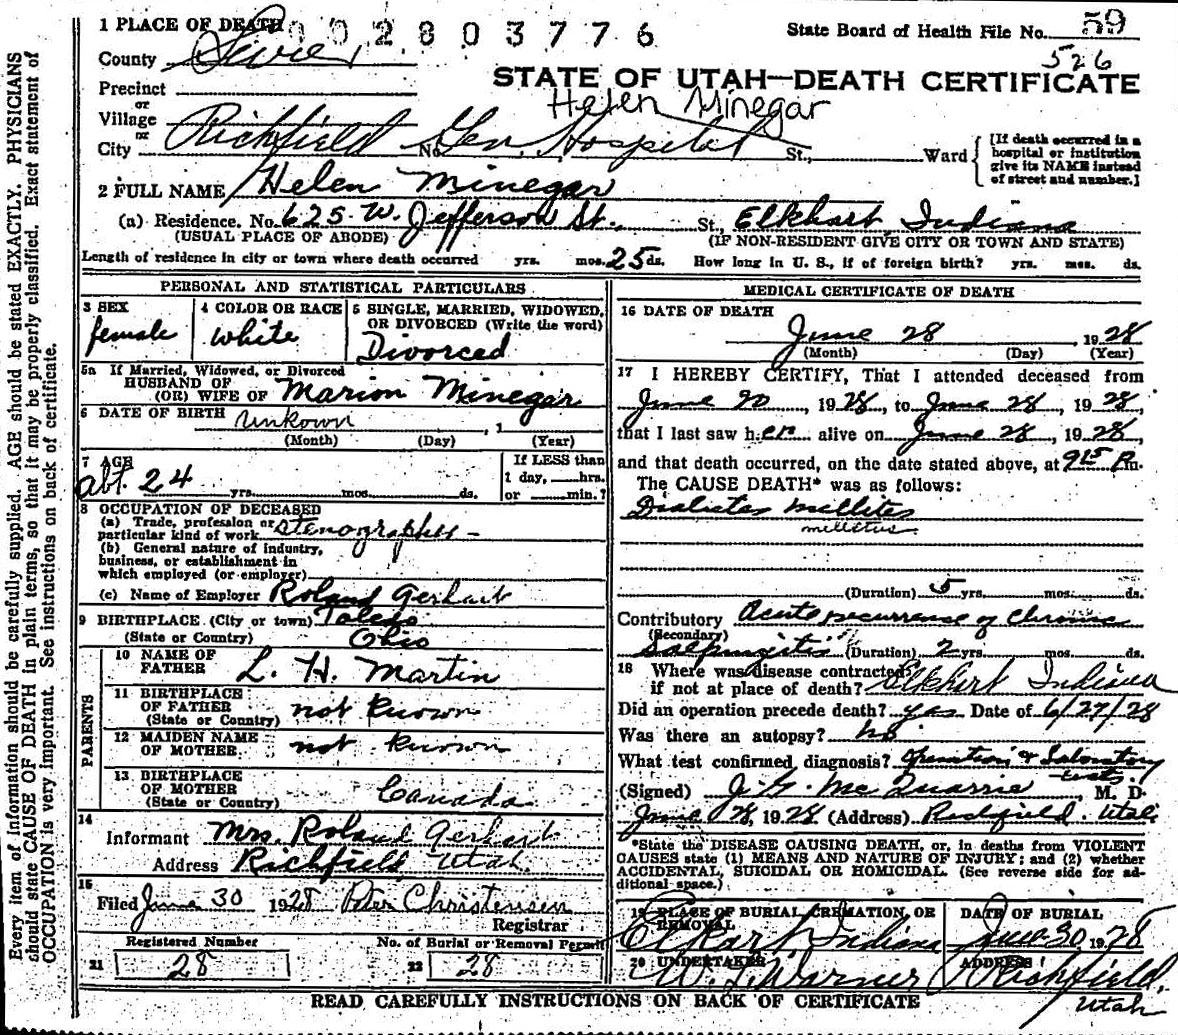 1 PLACE OF DEATH 002803776
State Board of Health File No. 59
526
County Sevier
STATE OF UTAH—DEATH CERTIFICATE
Precinct
Helen Minegar
or
Village
or
City Richfield No. Gen. Hospital St., Ward
[If death occurred in a hospital or institution give its NAME instead of street and number.]
2 FULL NAME Helen Minegar
(a) Residence. No. 625 W. Jefferson St. St., Elkhart, Indiana
(USUAL PLACE OF ABODE) (IF NON-RESIDENT GIVE CITY OR TOWN AND STATE)
Length of residence in city or town where death occurred yrs. mos. 25 ds. How long in U. S., if of foreign birth? yrs. mos. ds.
PERSONAL AND STATISTICAL PARTICULARS
3 SEX
female
4 COLOR OR RACE
white
5 SINGLE, MARRIED, WIDOWED, OR DIVORCED (Write the word)
Divorced
5a If Married, Widowed, or Divorced
HUSBAND OF
(OR) WIFE OF Marion Minegar
6 DATE OF BIRTH unkown , 1
(Month) (Day) (Year)
7 AGE
abt. 24 yrs. mos. ds.
If LESS than
1 day, hrs.
or min.?
8 OCCUPATION OF DECEASED
(a) Trade, profession or
particular kind of work stenographer -
(b) General nature of industry,
business, or establishment in
which employed (or employer)
(c) Name of Employer Roland Gerhart
9 BIRTHPLACE (City or town) Toledo
(State or Country) Ohio
PARENTS
10 NAME OF
FATHER L. H. Martin
11 BIRTHPLACE
OF FATHER not known
(State or Country)
12 MAIDEN NAME
OF MOTHER not known
13 BIRTHPLACE
OF MOTHER
(State or Country) Canada
14
Informant Mrs. Roland Gerhart
Address Richfield, Utah.
15
Filed June 30 1928 Peter Christensen
Registrar
Registered Number
21 28
No. of Burial or Removal Permit
22 28
MEDICAL CERTIFICATE OF DEATH
16 DATE OF DEATH
June 28 , 1928
(Month) (Day) (Year)
17 I HEREBY CERTIFY, That I attended deceased from
June 20, 1928, to June 28, 1928,
that I last saw her alive on June 28, 1928,
and that death occurred, on the date stated above, at 9 15 Pm.
The CAUSE DEATH* was as follows:
Diabetes mellites
mellitus
(Duration) 5 yrs. mos. ds.
Contributory Acute recurrence of Chronic
(Secondary)
Salpingitis (Duration) 2 yrs. mos. ds.
18 Where was disease contracted
if not at place of death? Elkhart Indiana
Did an operation precede death? yes Date of 6/27/28
Was there an autopsy? no
What test confirmed diagnosis? Operation & Laboratory
tests
(Signed) J. G. McQuarrie, M. D.
June 28, 1928 (Address) Richfield. Utah
*State the DISEASE CAUSING DEATH, or, in deaths from VIOLENT
CAUSES state (1) MEANS AND NATURE OF INJURY; and (2) whether
ACCIDENTAL, SUICIDAL OR HOMICIDAL. (See reverse side for ad-
ditional space.)
19 PLACE OF BURIAL CREMATION, OR
REMOVAL
Elkart, Indiana
DATE OF BURIAL
June 30, 1928
20 UNDERTAKER
W. L. Warner
ADDRESS
Richfield,
Utah
READ CAREFULLY INSTRUCTIONS ON BACK OF CERTIFICATE
Every item of information should be carefully supplied. AGE should be stated EXACTLY. PHYSICIANS
should state CAUSE OF DEATH in plain terms, so that it may be properly classified. Exact statement of
OCCUPATION is very important. See instructions on back of certificate.